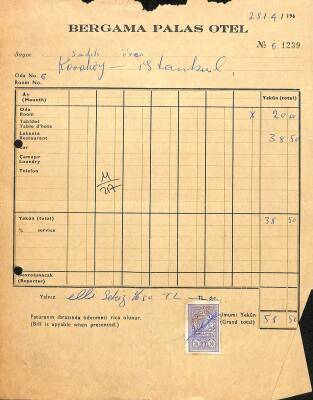 28/4/196
BERGAMA PALAS OTEL
№ 6 1239
Sayın
Karaköy — istanbul
Oda No. 6
Room No.
Ay
(Mounth)
Yekûn (total)
Oda
Room
x 20 00
Tabldot
Table d'hote
Lokanta
Restaurant
38 50
Bar
Çamaşır
Laundry
Telefon
M
217
Yekûn (total)
38 50
% service
Devrolunacak
(Reporter)
Yalnız elli Sekiz 50 TL
Faturanın ibrazında ödenmesi rica olunur.
(Bill is apyable when presented.)
Umumi Yekûn
(Grand total)
58 50